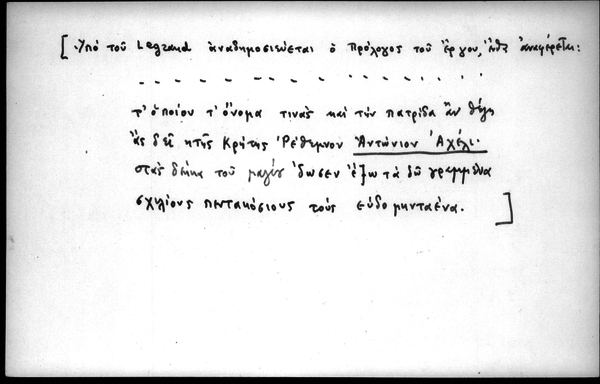 [Ὑπό τοῦ Legrand ἀναδημοσιεύεται ὁ πρόλογος τοῦ ἔργου, ἀναφέρεται:
- - - - - - - - - - - -
τ' ὁποίου τ' ὄνομα τινὰς καὶ τὴν πατρίδα ἂν θέλῃ
ἂς δεῖ κ τῆς Κρήτης Ῥέθεμνον Ἀντώνιον Ἀχέλι.
στὰς δέκα τοῦ μαγίου ἔδωσεν ἔξω τὰ δῶ γραμμένα
σχιλίους πεντακόσιους τοὺς εὐδομηνταένα. ]